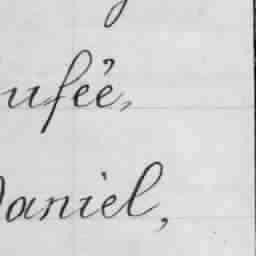 ufée,
Daniel,